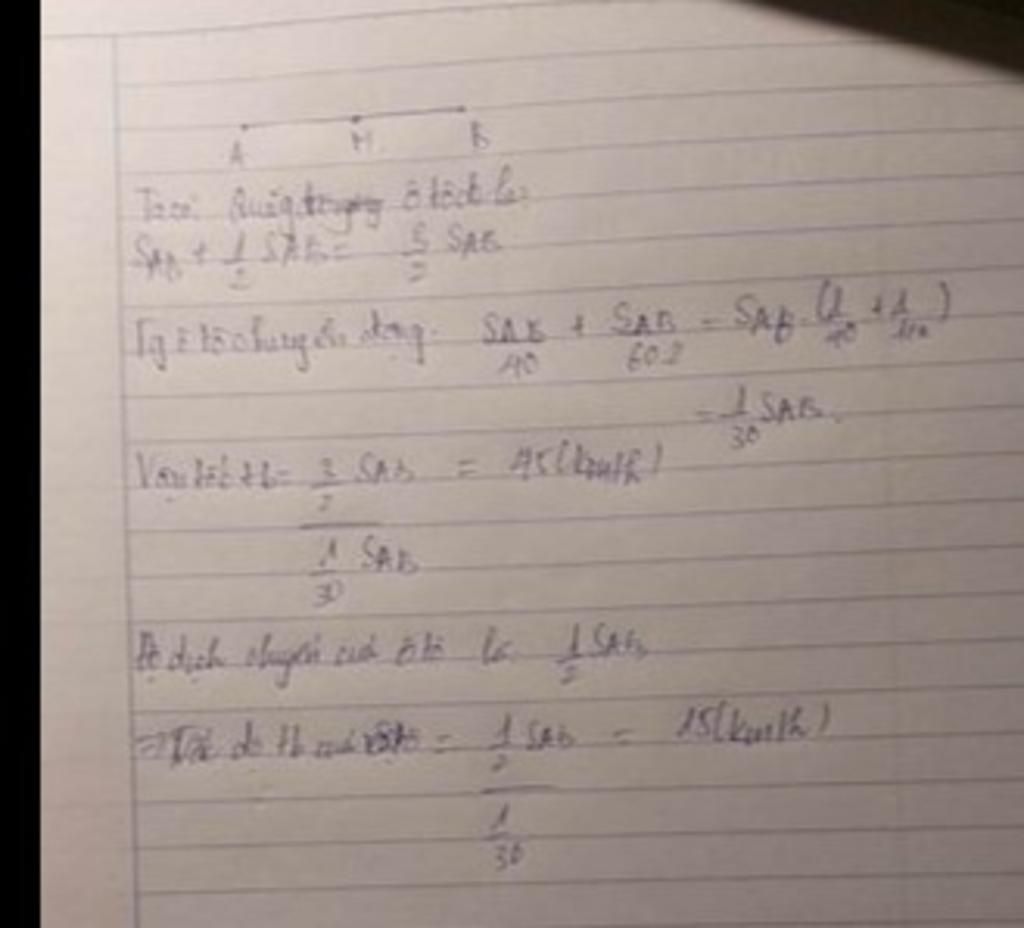 A M B
Ta có: Quãng đường ô tô đi là:
S_AB + 1/2 S_AB = 3/2 S_AB
Tg ô tô chuyển động: S_AB/40 + S_AB/60.2 = S_AB.(1/40 + 1/120)
= 1/30 S_AB.
Vận tốc tb = (3/2 S_AB)/(1/30 S_AB) = 45(km/h)
Độ dịch chuyển của ô tô là 1/2 S_AB
=> Tốc độ tb của = (1/2 S_AB)/(1/30) = 15(km/h)